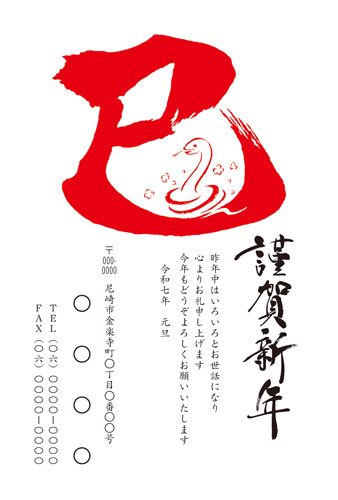 巳
謹賀新年
昨年中はいろいろとお世話になり
心よりお礼申し上げます
今年もどうぞよろしくお願いいたします
令和七年 元旦
〒000-0000
尼崎市金楽寺町〇丁目〇番〇〇号
〇〇〇〇
TEL(〇六)〇〇〇〇-〇〇〇〇
FAX(〇六)〇〇〇〇-〇〇〇〇